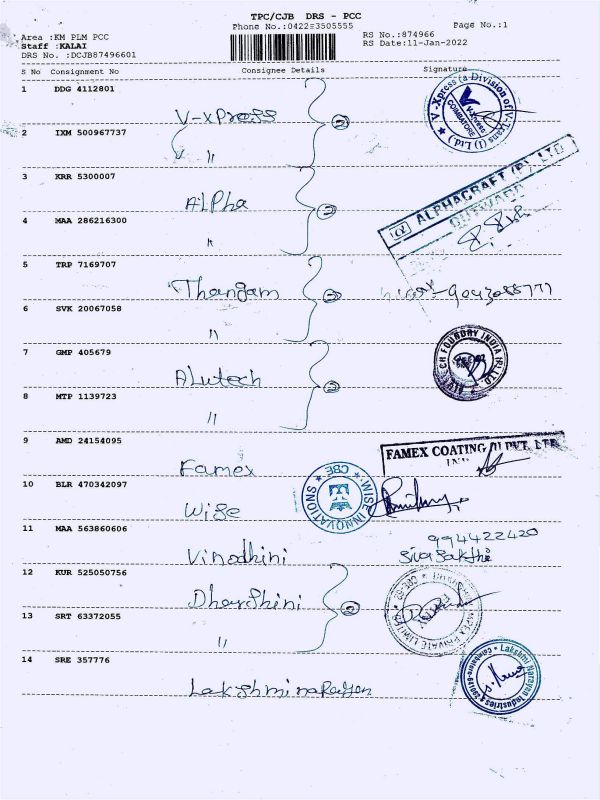 TPC/CJB DRS - PCC
Phone No.:0422=3505555
Page No.:1
Area :KM PLM PCC
Staff :KALAI
DRS No. :DCJB87496601
RS No.:874966
RS Date:11-Jan-2022
S No Consignment No Consignee Details Signature
1 DDG 4112801 V-xPress
2 IXM 500967737 "
②
V-Xpress (a Division of V-Trans (I) Ltd.)
COIMBATORE
3 KRR 5300007 ALPha
4 MAA 286216300 "
②
ALPHACRAFT (P) LTD
OUTWARD
5 TRP 7169707 Thangam
6 SVK 20067058 "
②
7 GMP 405679 ALutech
8 MTP 1139723 "
②
FOUNDRY INDIA (P) LTD
9 AMD 24154095 Famex
FAMEX COATING (I) PVT. LTD
10 BLR 470342097 Wise
WISE INNOVATIONS
CBE
11 MAA 563860606 Vinodhini
994422420
Siva Sakthi
12 KUR 525050756 Dharshini
13 SRT 63372055 "
②
IMPEX PRIVATE LIMITED
14 SRE 357776 Lakshminarayan
Lakshmi Narayan Industries